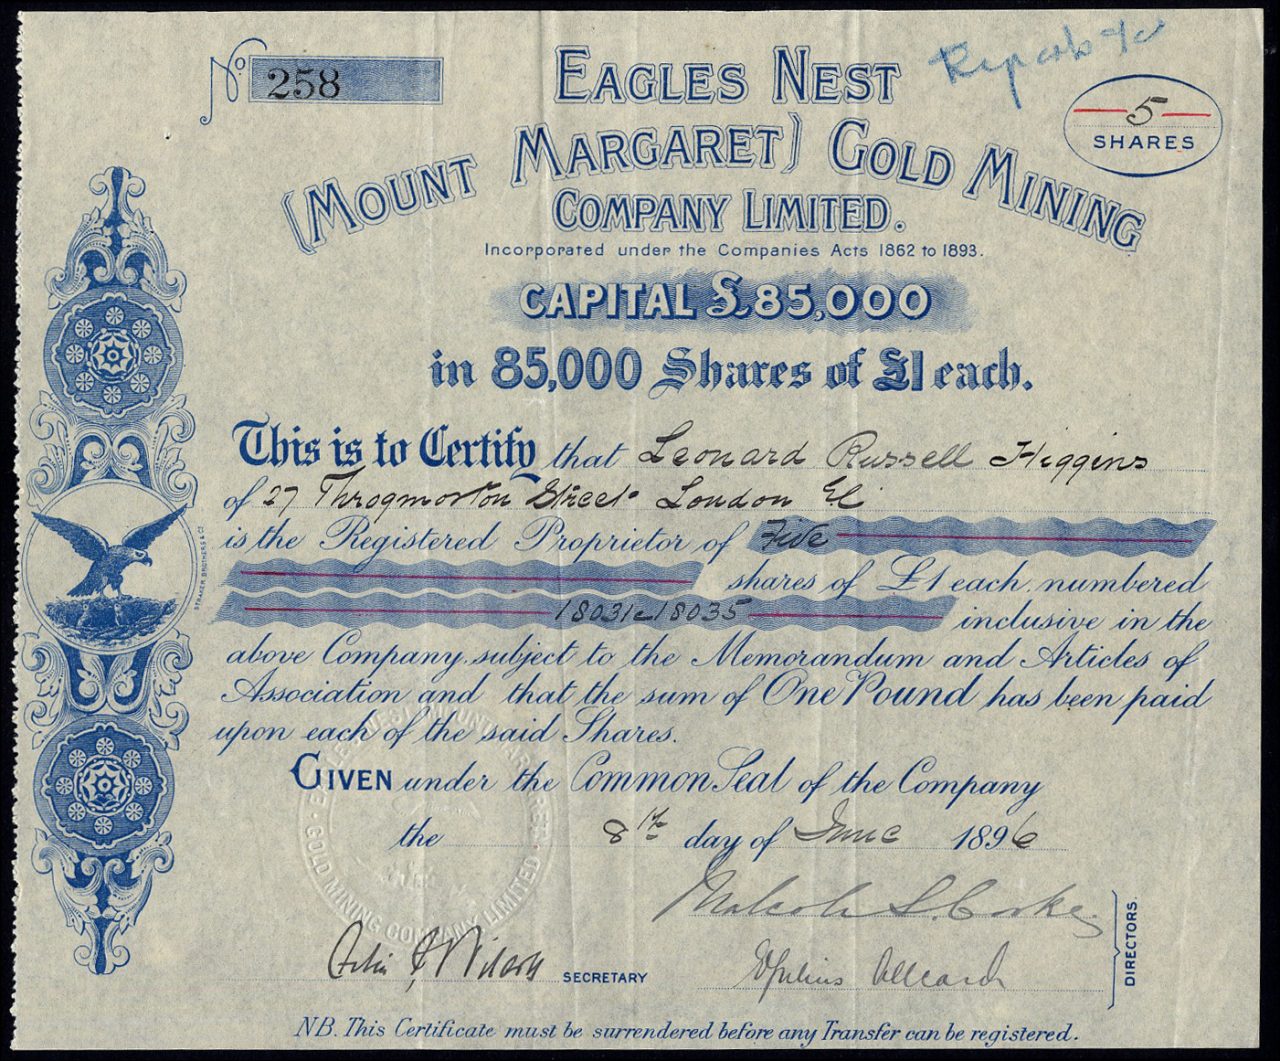 No. 258
EAGLES NEST
(MOUNT MARGARET) GOLD MINING
COMPANY LIMITED.
5
SHARES
Incorporated under the Companies Acts 1862 to 1893.
CAPITAL £85,000
in 85,000 Shares of £1 each.
This is to Certify that Leonard Russell Higgins
of 27 Throgmorton Street London E.C
is the Registered Proprietor of Five
shares of £1 each, numbered
18031 to 18035 inclusive in the
above Company, subject to the Memorandum and Articles of
Association and that the sum of One Pound has been paid
upon each of the said Shares.
GIVEN under the Common Seal of the Company
the 8th day of June 1896
Malcolm S. Cooke
DIRECTORS.
Wilson SECRETARY
Julius Allcard
NB. This Certificate must be surrendered before any Transfer can be registered.
STRAKER BROTHERS & Co
EAGLES NEST (MOUNT MARGARET) GOLD MINING COMPANY LIMITED